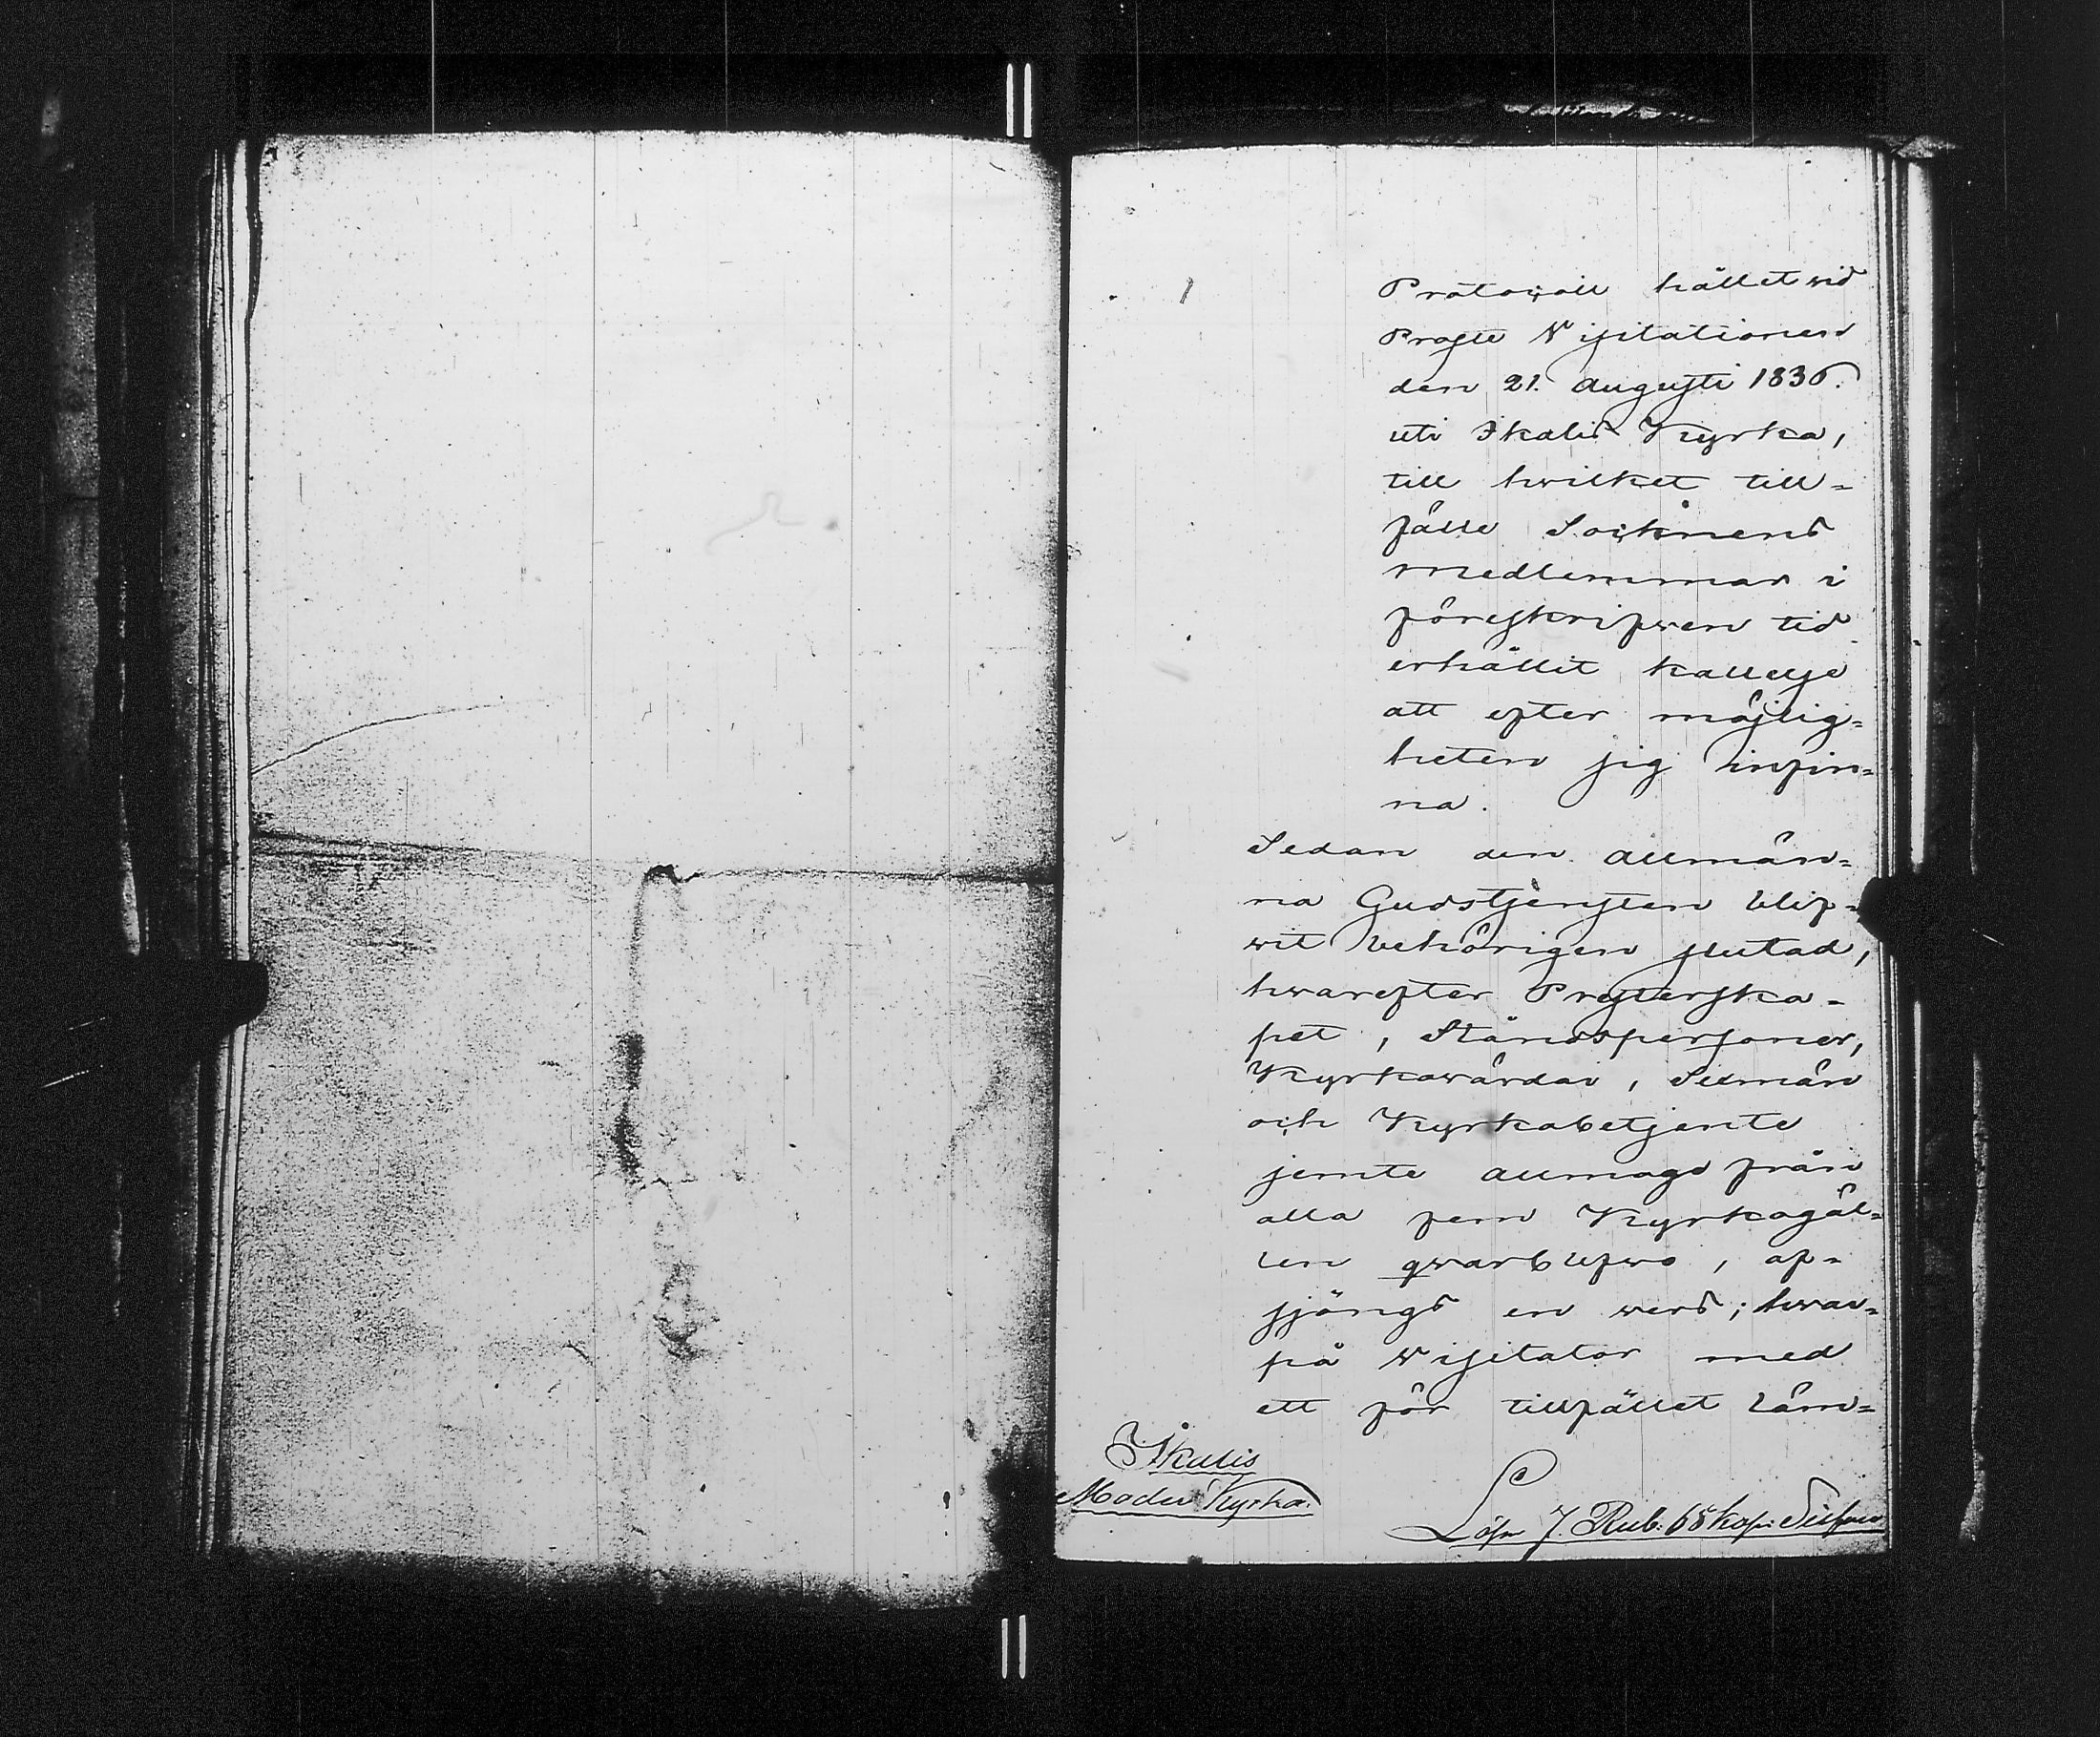 Protocoll hållet vid
Proste Visitationen
den 21. Augusti 1836.
uti Ikalis Kyrka,
till hvilket till=
fälle Socknens
medlemmar i
föreskrifven tid
erhållit kallelse
att efter möjlig=
heten sig infin=
na.
Sedan den allmän=
na Gudstjensten blif=
vit behörigen slutad,
hvarefter Presterska-
pet, Ståndspersoner,
Kyrkovärdar, Sexmän
och Kyrkobetjente
jemte allmoge från
alla fem Kyrkogäl=
len qvarblefvo, af=
sjöngs en vers; hvar=
på Visitator med
ett för tillfället läm=
Ikalis
Moder Kyrka.
Lösn 7. Rub: 68 kop: Silfver